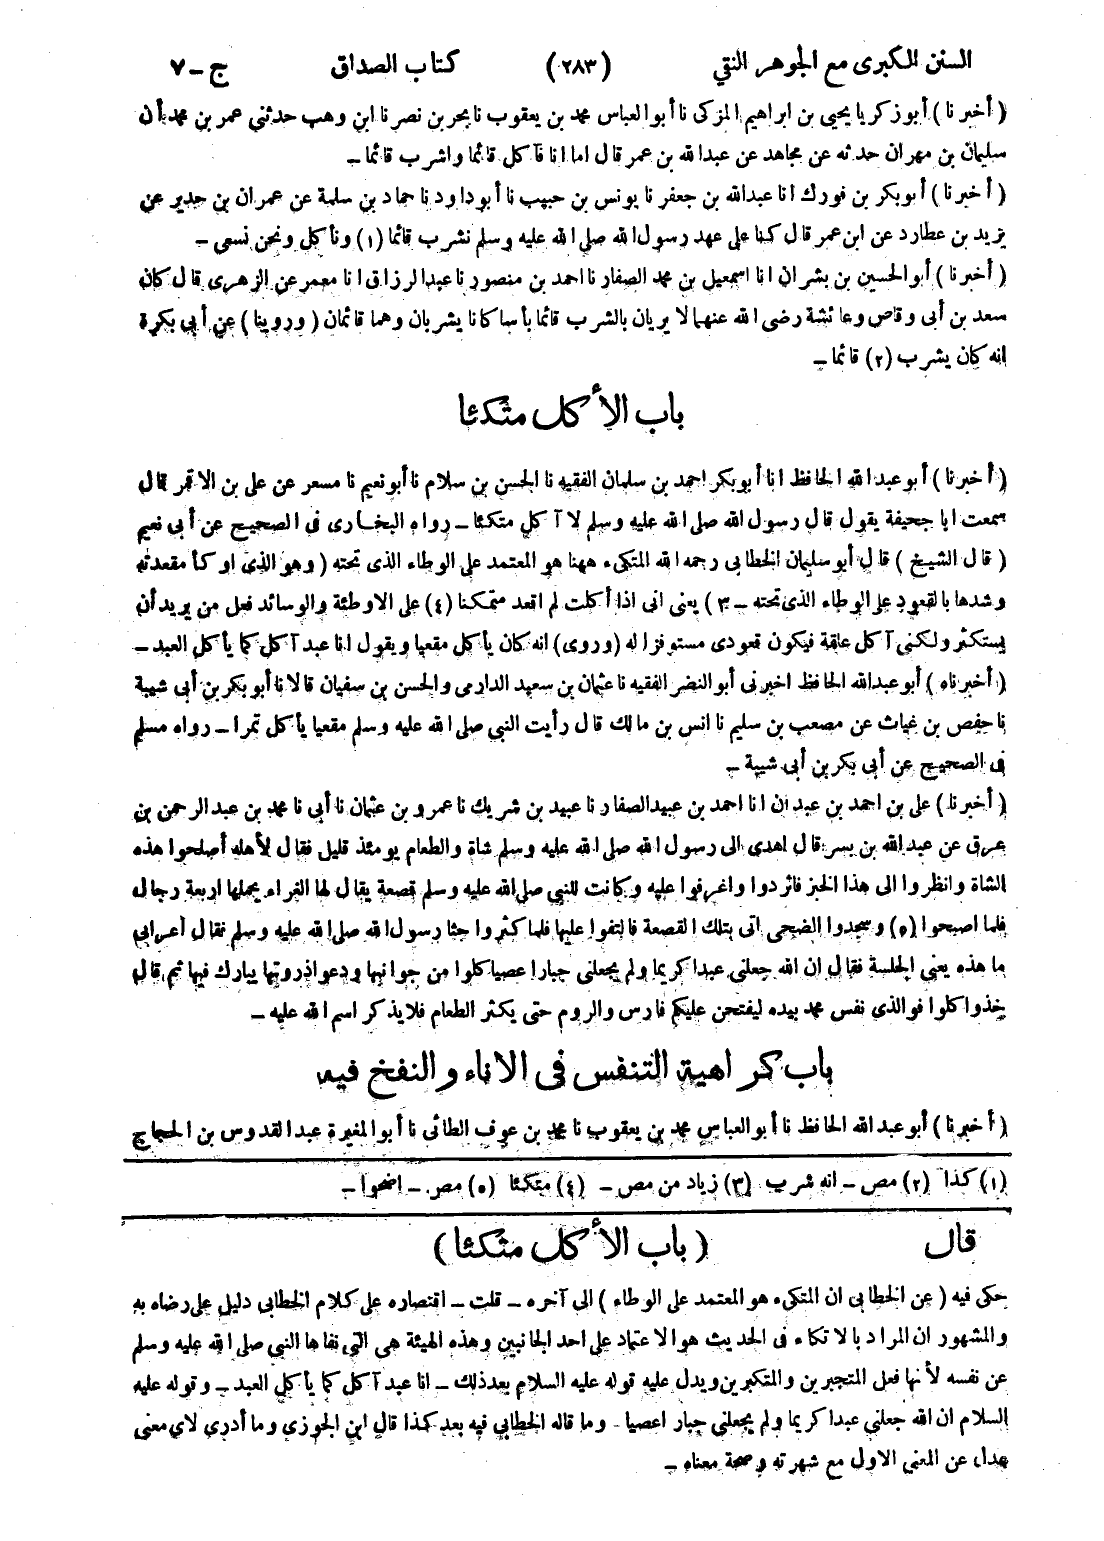 السنن الكبرى مع الجوهر النقي (٢٨٣) كتاب الصداق ج - ٧
( أخبرنا ) أبو زكريا يحيى بن ابراهيم المزكى نا أبو العباس محمد بن يعقوب نا بحر بن نصر نا ابن وهب حدثني عمر بن محمد أن
سليمان بن مهران حدثه عن مجاهد عن عبدالله بن عمر قال اما انا فآ كل قائما واشرب قائما –
( أخبرنا ) أبوبكر بن فورك انا عبدالله بن جعفر نا يونس بن حبيب نا أبو داود نا حماد بن سلمة عن عمران بن حدير عن
يزيد بن عطارد عن ابن عمر قال كنا على عهد رسول الله صلى الله عليه وسلم نشرب قائما (١) ونأكل ونحن نسعى –
( أخبرنا ) أبو الحسين بن بشران انا اسمعيل بن محمد الصفار نا احمد بن منصور نا عبدالرزاق انا معمر عن الزهرى قال كان
سعد بن أبى وقاص وعائشة رضى الله عنهما لا يريان بالشرب قائما بأسا كانا يشربان وهما قائمان ( وروينا ) عن أبى بكرة
انه كان يشرب (٢) قائما –
باب الأكل متكئا
( أخبرنا ) أبو عبد الله الحافظ انا أبوبكر احمد بن سلمان الفقيه نا الحسن بن سلام نا أبو نعيم نا مسعر عن على بن الاقمر قال
سمعت ابا جحيفة يقول قال رسول الله صلى الله عليه وسلم لا آكل متكئا – رواه البخارى فى الصحيح عن أبى نعيم
( قال الشيخ ) قال أبو سليمان الخطابى رحمه الله المتكىء ههنا هو المعتمد على الوطاء الذى تحته ( وهو الذى اوكأ مقعدته
وشدها بالقعود على الوطاء الذى تحته – ٣ ) يعنى انى اذا أكلت لم اقعد متمكنا (٤) على الاوطئة والوسائد فعل من يريد أن
يستكثر ولكنى آكل علقة فيكون قعودى مستوفزا له (وروى) انه كان يأكل مقعيا ويقول انا عبد آكل كما يأكل العبد –
( أخبرناه ) أبو عبدالله الحافظ اخبرنى أبو النضر الفقيه نا عثمان بن سعيد الدارمى والحسن بن سفيان قالا نا أبو بكر بن أبى شيبة
نا حفص بن غياث عن مصعب بن سليم نا انس بن مالك قال رأيت النبي صلى الله عليه وسلم مقعيا يأكل تمرا – رواه مسلم
فى الصحيح عن أبى بكر بن أبى شيبة –
( أخبرنا ) على بن احمد بن عبدان انا احمد بن عبيد الصفار نا عبيد بن شريك نا عمرو بن عثمان نا أبى نا محمد بن عبد الرحمن بن
عرق عن عبدالله بن بسر قال اهدى الى رسول الله صلى الله عليه وسلم شاة والطعام يومئذ قليل فقال لأهله أصلحوا هذه
الشاة وانظروا الى هذا الخبز فاثردوا واغرفوا عليه وكانت للنبى صلى الله عليه وسلم قصعة يقال لها الغراء يحملها اربعة رجال
فلما اصبحوا (٥) وسجدوا الضحى اتى بتلك القصعة فالتفوا عليها فلما كثروا جثا رسول الله صلى الله عليه وسلم فقال أعرابى
ما هذه يعنى الجلسة فقال ان الله جعلنى عبدا كريما ولم يجعلنى جبارا عصيا كلوا من جوانبها ودعوا ذروتها يبارك فيها ثم قال
خذوا كلوا فوالذى نفس محمد بيده ليفتحن عليكم فارس والروم حتى يكثر الطعام فلا يذكر اسم الله عليه –
باب كراهية التنفس فى الاناء والنفخ فيه
( أخبرنا ) أبو عبدالله الحافظ نا أبو العباس محمد بن يعقوب نا محمد بن عوف الطائى نا أبو المغيرة عبدالقدوس بن الحجاج
(١) كذا (٢) مص – انه شرب (٣) زياد من مص – (٤) متكئا (٥) مص – اضحوا –
قال ( باب الأكل متكئا )
حكى فيه ( عن الخطابى ان المتكىء هو المعتمد على الوطاء ) الى آخره – قلت – اقتصاره على كلام الخطابى دليل على رضاه به
والمشهور ان المراد بالاتكاء فى الحديث هو الاعتماد على احد الجانبين وهذه الهيئة هى التى نفاها النبى صلى الله عليه وسلم
عن نفسه لأنها فعل المتجبرين والمتكبرين ويدل عليه قوله عليه السلام بعد ذلك – انا عبد آكل كما يأكل العبد – وقوله عليه
السلام ان الله جعلنى عبدا كريما ولم يجعلنى جبارا عصيا – وما قاله الخطابى فيه بعد كذا قال ابن الجوزي وما أدرى لاى معنى
عدل عن المعنى الاول مع شهرته وصحة معناه –